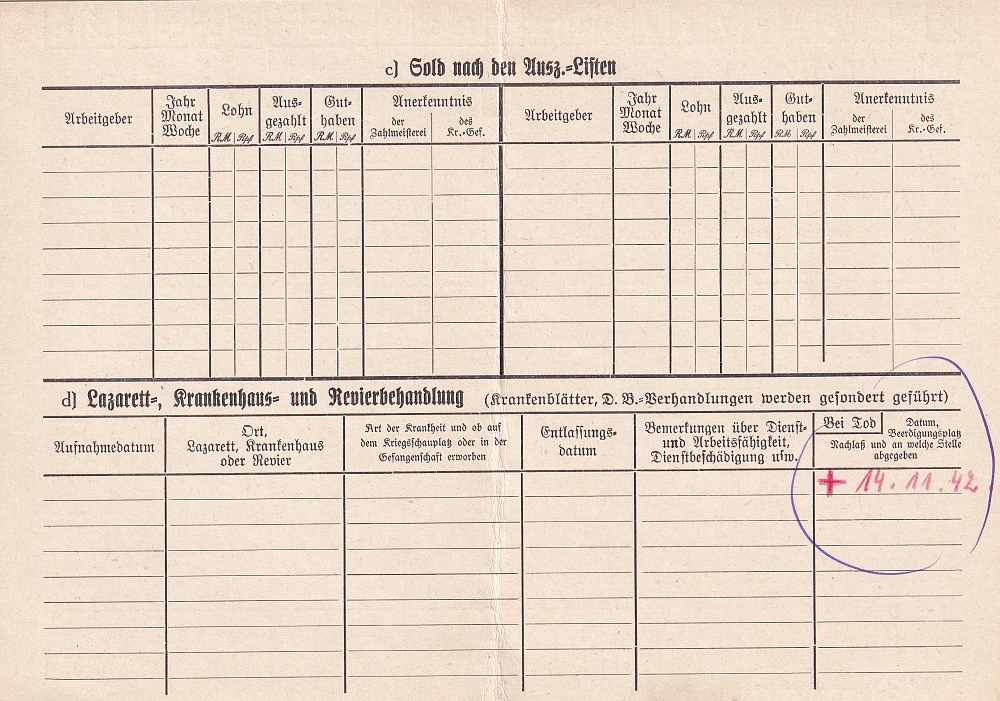 c) Sold nach den Ausz.-Listen
Arbeitgeber Jahr Monat Woche Lohn Aus- gezahlt Gut- haben Anerkenntnis Arbeitgeber Jahr Monat Woche Lohn Aus- gezahlt Gut- haben Anerkenntnis
RM Rpf RM Rpf RM Rpf der Zahlmeisterei des Kr.-Gef. RM Rpf RM Rpf RM Rpf der Zahlmeisterei des Kr.-Gef.
d) Lazarett-, Krankenhaus- und Revierbehandlung (Krankenblätter, D. B.-Verhandlungen werden gesondert geführt)
Aufnahmedatum
Ort,
Lazarett, Krankenhaus
oder Revier
Art der Krankheit und ob auf
dem Kriegsschauplatz oder in der
Gefangenschaft erworben
Entlassungs-
datum
Bemerkungen über Dienst-
und Arbeitsfähigkeit,
Dienstbeschädigung usw.
Bei Tod
Datum,
Beerdigungsplatz
Nachlaß und an welche Stelle
abgegeben
+ 14. 11. 42